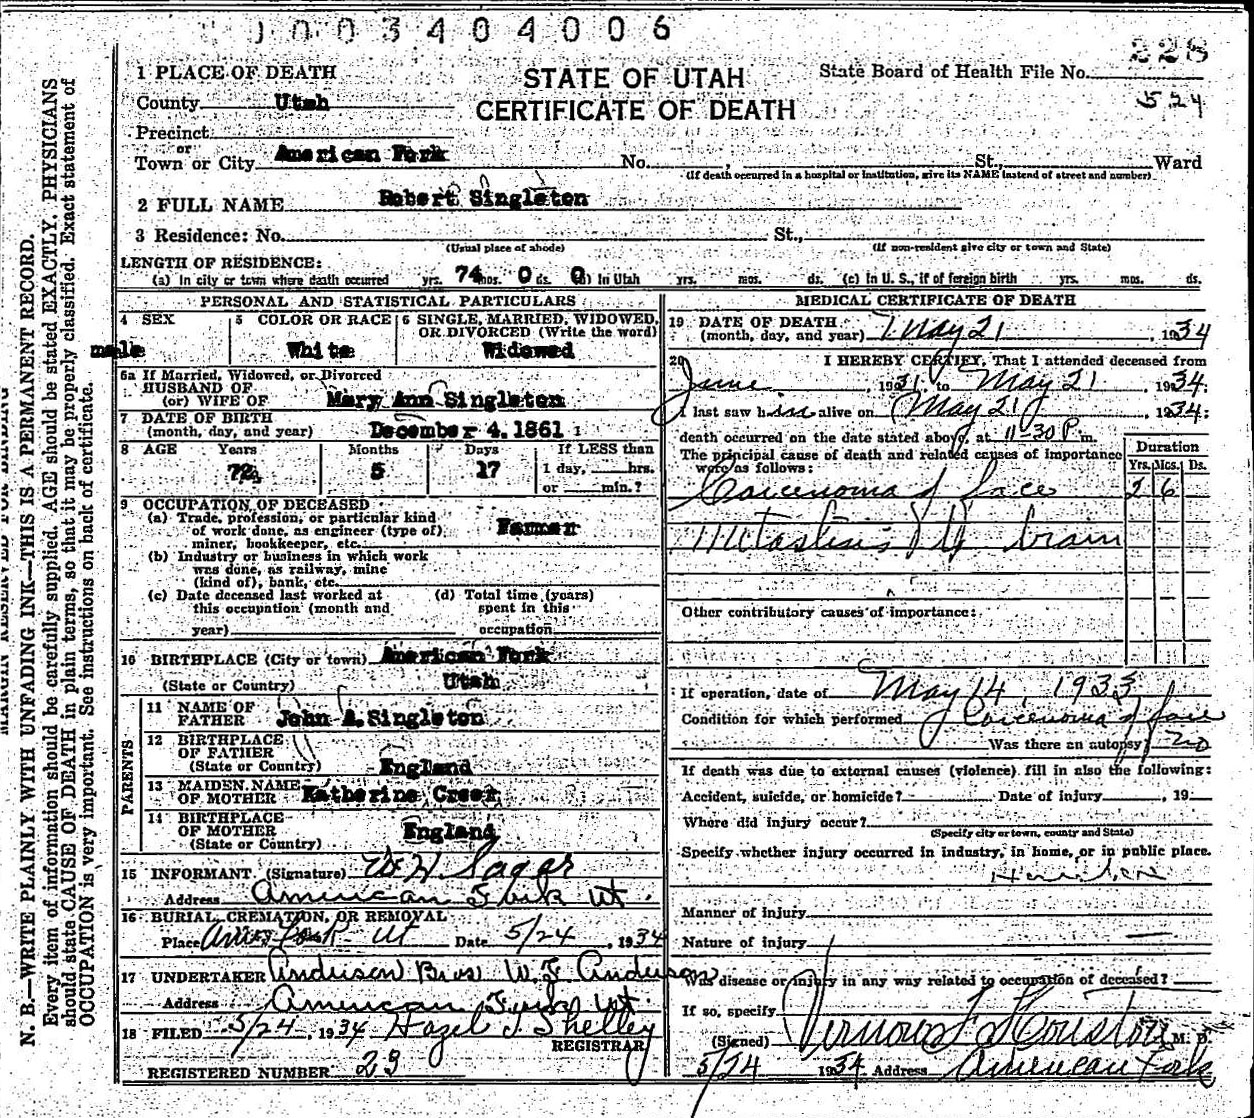 1003404006
228
STATE OF UTAH
CERTIFICATE OF DEATH
State Board of Health File No.
524
1 PLACE OF DEATH
County Utah
Precinct
or
Town or City American Fork No. , St., Ward
(If death occurred in a hospital or institution, give its NAME instead of street and number)
2 FULL NAME Robert Singleton
3 Residence: No. St.,
(Usual place of abode) (If non-resident give city or town and State)
LENGTH OF RESIDENCE:
(a) In city or town where death occurred yrs. 74 mos. 0 ds. 0 (b) In Utah yrs. mos. ds. (c) In U. S., if of foreign birth yrs. mos. ds.
PERSONAL AND STATISTICAL PARTICULARS
4 SEX
male
5 COLOR OR RACE
White
6 SINGLE, MARRIED, WIDOWED, OR DIVORCED (Write the word)
Widowed
6a If Married, Widowed, or Divorced
HUSBAND OF
(or) WIFE OF Mary Ann Singleton
7 DATE OF BIRTH
(month, day, and year) December 4, 1861
8 AGE Years Months Days If LESS than
72 5 17 1 day, hrs.
or min.?
9 OCCUPATION OF DECEASED
(a) Trade, profession, or particular kind
of work done, as engineer (type of)
miner, bookkeeper, etc. Farmer
(b) Industry or business in which work
was done, as railway, mine
(kind of), bank, etc.
(c) Date deceased last worked at
this occupation (month and
year)
(d) Total time (years)
spent in this
occupation
10 BIRTHPLACE (City or town) American Fork
(State or Country) Utah
PARENTS
11 NAME OF
FATHER John A. Singleton
12 BIRTHPLACE
OF FATHER
(State or Country) England
13 MAIDEN NAME
OF MOTHER Katherine Creer
14 BIRTHPLACE
OF MOTHER
(State or Country) England
15 INFORMANT (Signature) H Sagar
Address American Fork Ut.
16 BURIAL, CREMATION, OR REMOVAL
Place Amer Fork Ut Date 5/24, 1934
17 UNDERTAKER Anderson Bros W. Anderson
Address American Fork Ut.
18 FILED 5/24, 1934 Hazel J Shelley
REGISTRAR
REGISTERED NUMBER 23
MEDICAL CERTIFICATE OF DEATH
19 DATE OF DEATH
(month, day, and year) May 21, 1934
20 I HEREBY CERTIFY, That I attended deceased from
June, 1931 to May 21 1934;
I last saw him alive on May 21, 1934;
death occurred on the date stated above, at 11-30 P. m.
The principal cause of death and related causes of importance
were as follows:
Duration
Yrs. Mos. Ds.
Carcenoma of face 2 6
Mitastisis brain
Other contributory causes of importance:
If operation, date of May 14, 1933
Condition for which performed Carcenoma of face
Was there an autopsy? no
If death was due to external causes (violence) fill in also the following:
Accident, suicide, or homicide? Date of injury , 19
Where did injury occur?
(Specify city or town, county and State)
Specify whether injury occurred in industry, in home, or in public place.
Manner of injury
Nature of injury
Was disease or injury in any way related to occupation of deceased?
If so, specify
(Signed) Vernow F Houston M. D.
5/24 1934 Address American Fork
MARGIN RESERVED FOR BINDING
N. B.—WRITE PLAINLY WITH UNFADING INK—THIS IS A PERMANENT RECORD.
Every item of information should be carefully supplied. AGE should be stated EXACTLY. PHYSICIANS
should state CAUSE OF DEATH in plain terms, so that it may be properly classified. Exact statement of
OCCUPATION is very important. See instructions on back of certificate.